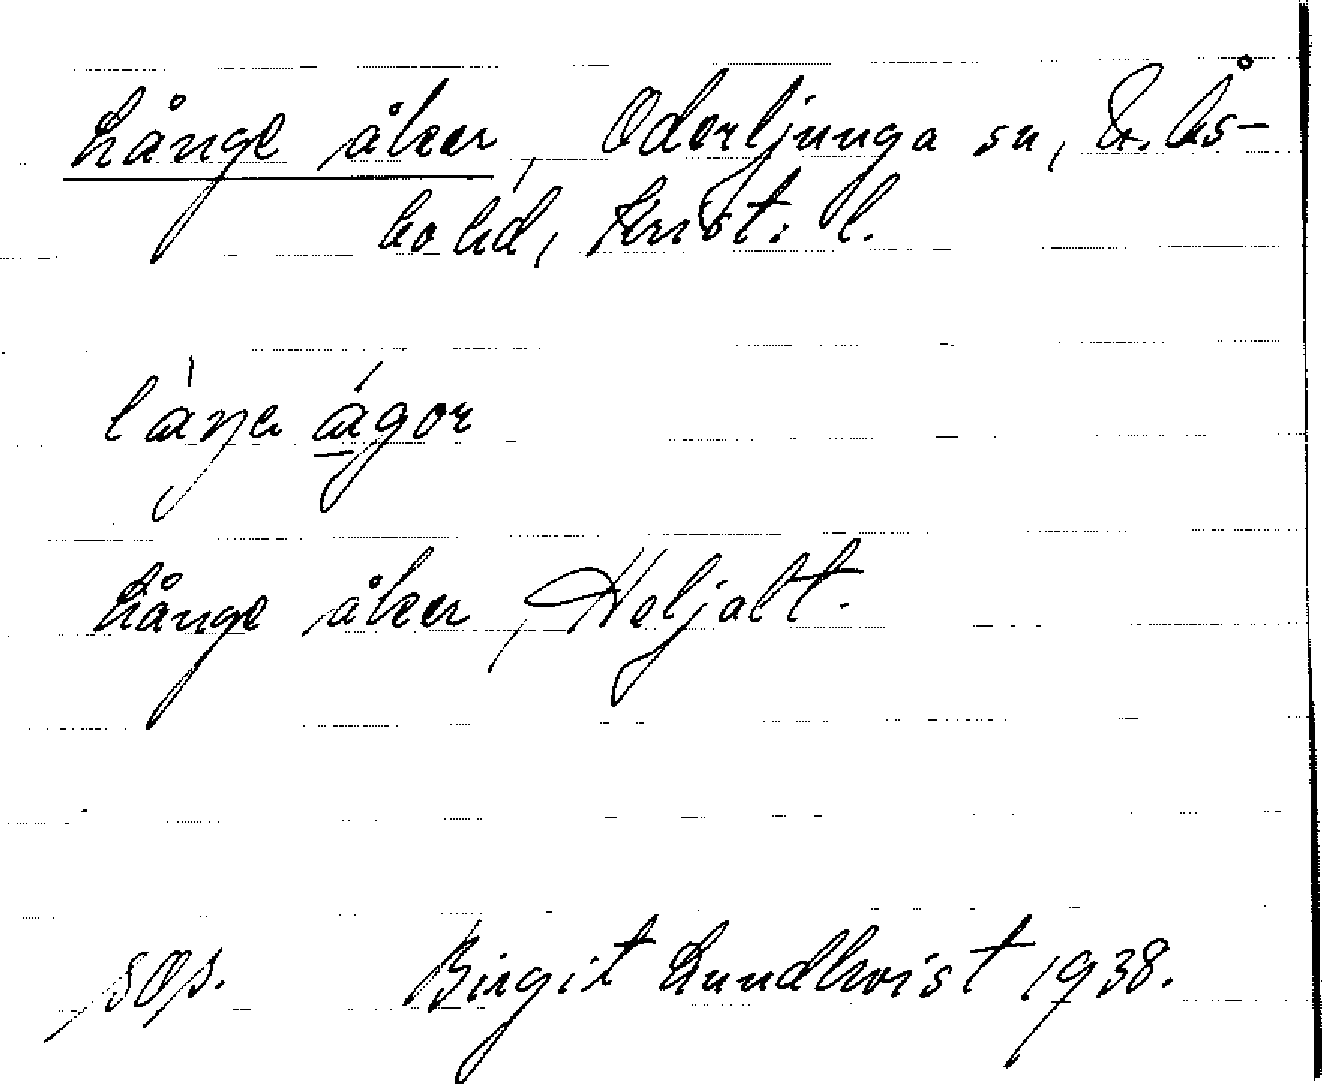 Långe åker, Oderljunga sn, N. Ås-
bo hd, Krist. l.
låŋa ågor
Långe åker, Heljalt.
sos. Birgit Lundkvist 1938.